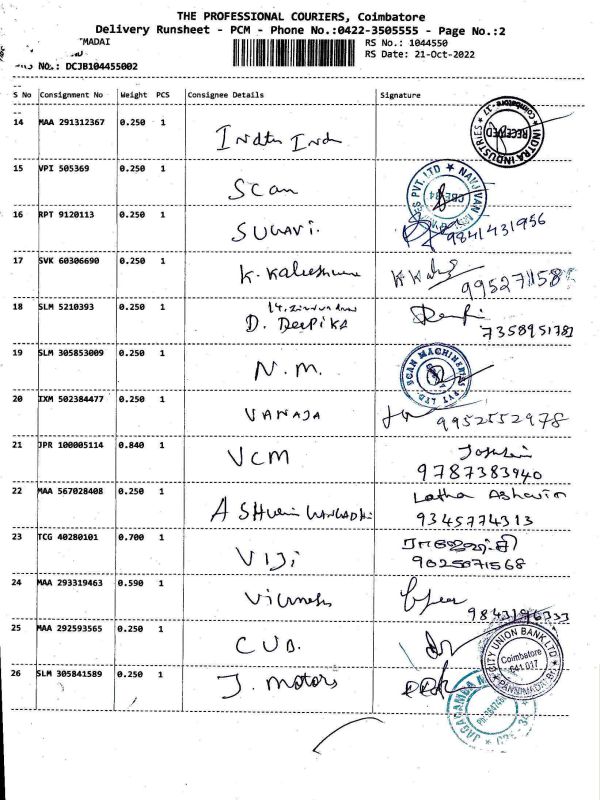 THE PROFESSIONAL COURIERS, Coimbatore
Delivery Runsheet - PCM - Phone No.:0422-3505555 - Page No.:2
MADAI
RS No.: 1044550
RS Date: 21-Oct-2022
No.: DCJB104455002
S No Consignment No Weight PCS Consignee Details Signature
14 MAA 291312367 0.250 1 INDTRA INDUSTRIES RECEIVED Coimbatore - 17
15 VPI 505369 0.250 1 Scan NAVJIVAN PVT. LTD
16 RPT 9120113 0.250 1 9841431956
17 SVK 60306690 0.250 1 K. Kaleeshwari 9952711585
18 SLM 5210393 0.250 1 D. DeepikA 7358951781
19 SLM 305853009 0.250 1 N. M. SCAN MACHINERIES PVT LTD
20 IXM 502384477 0.250 1 VANAJA 9952552978
21 JPR 100005114 0.840 1 VCM 9787383940
22 MAA 567028408 0.250 1 Latha Ashwin
9345774313
23 TCG 40280101 0.700 1 VIJi 9025071568
24 MAA 293319463 0.590 1 9843196333
25 MAA 292593565 0.250 1 CUB. CITY UNION BANK LTD Coimbatore 641 017
26 SLM 305841589 0.250 1 J. motors